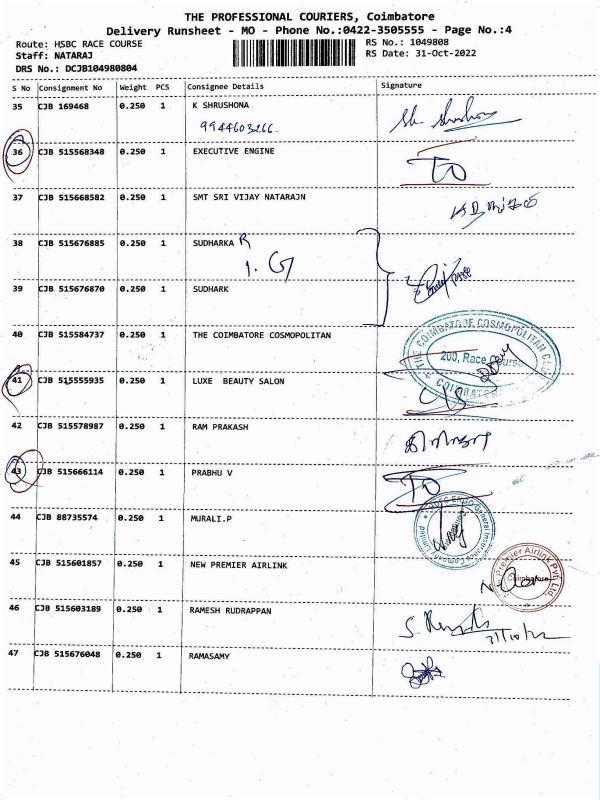 THE PROFESSIONAL COURIERS, Coimbatore
Delivery Runsheet - MO - Phone No.:0422-3505555 - Page No.:4
Route: HSBC RACE COURSE
RS No.: 1049808
Staff: NATARAJ
RS Date: 31-Oct-2022
DRS No.: DCJB104980804
S No Consignment No Weight PCS Consignee Details Signature
35 CJB 169468 0.250 1 K SHRUSHONA
9944603266.
36 CJB 515568348 0.250 1 EXECUTIVE ENGINE
37 CJB 515668582 0.250 1 SMT SRI VIJAY NATARAJN
38 CJB 515676885 0.250 1 SUDHARKA R
1. G
39 CJB 515676870 0.250 1 SUDHARK
40 CJB 515584737 0.250 1 THE COIMBATORE COSMOPOLITAN
THE COIMBATORE COSMOPOLITAN CLUB
200, Race Course
COIMBATORE
41 CJB 515555935 0.250 1 LUXE BEAUTY SALON
42 CJB 515578987 0.250 1 RAM PRAKASH
43 CJB 515666114 0.250 1 PRABHU V
44 CJB 88735574 0.250 1 MURALI.P
General Insurance Company Limited
45 CJB 515601857 0.250 1 NEW PREMIER AIRLINK
Premier Airlink Pvt. Ltd.
Coimbatore
46 CJB 515603189 0.250 1 RAMESH RUDRAPPAN
31/10/22
47 CJB 515676048 0.250 1 RAMASAMY